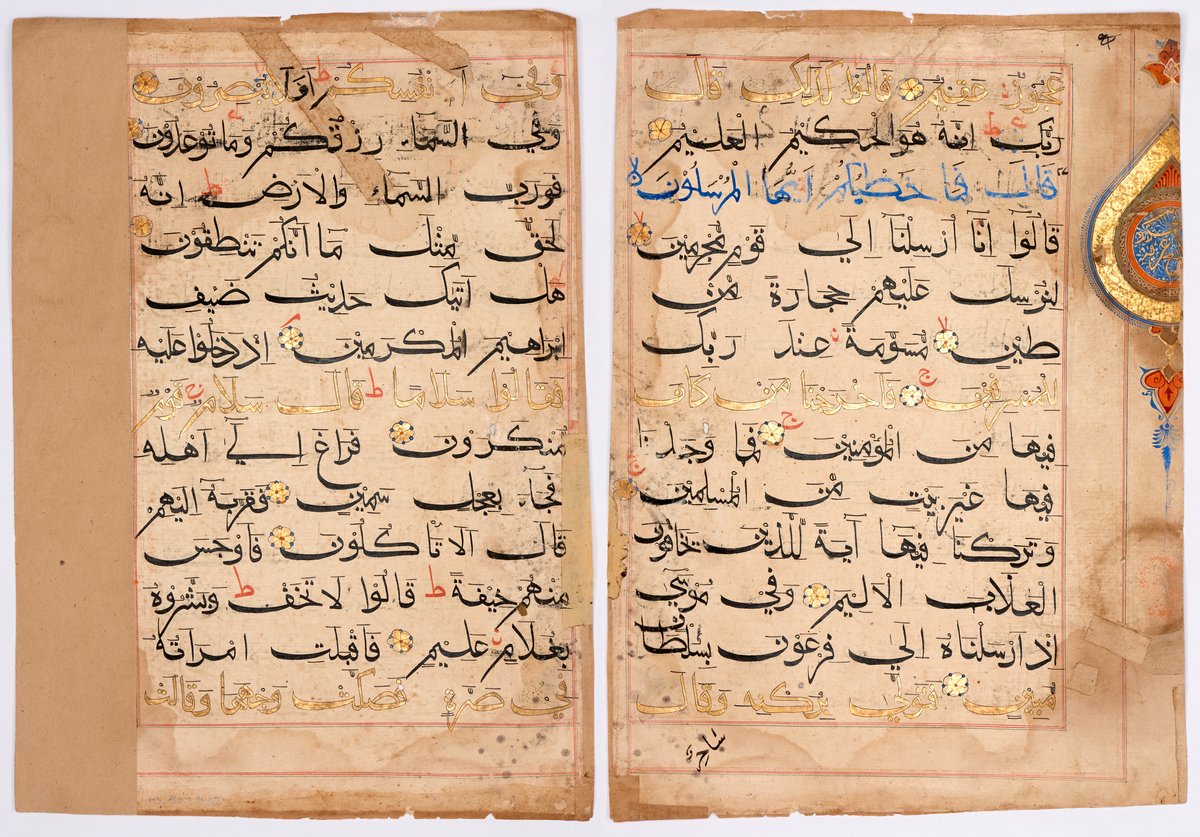 وفي انفسكم افلا تبصرون
وفي السماء رزقكم وما توعدون
فورب السماء والارض انه
لحق مثل ما انكم تنطقون
هل اتيك حديث ضيف
ابراهيم المكرمين اذ دخلوا عليه
فقالوا سلاما قال سلام قوم
منكرون فراغ الي اهله
فجاء بعجل سمين فقربه اليهم
قال الا تاكلون فاوجس
منهم خيفة ط قالوا لا تخف ط وبشروه
بغلام عليم فاقبلت امراته
في صرة فصكت وجهها وقالت
عجوز عقيم قالوا كذلك قال
ربك انه هو الحكيم العليم
قال فما خطبكم ايها المرسلون
قالوا انا ارسلنا الي قوم مجرمين
لنرسل عليهم حجارة من
طين مسومة عند ربك
للمسرفين فاخرجنا من كان
فيها من المؤمنين فما وجدنا
فيها غير بيت من المسلمين
وتركنا فيها آية للذين يخافون
العذاب الاليم وفي موسي
اذ ارسلناه الي فرعون بسلطان
مبين فتولي بركنه وقال
ساحر